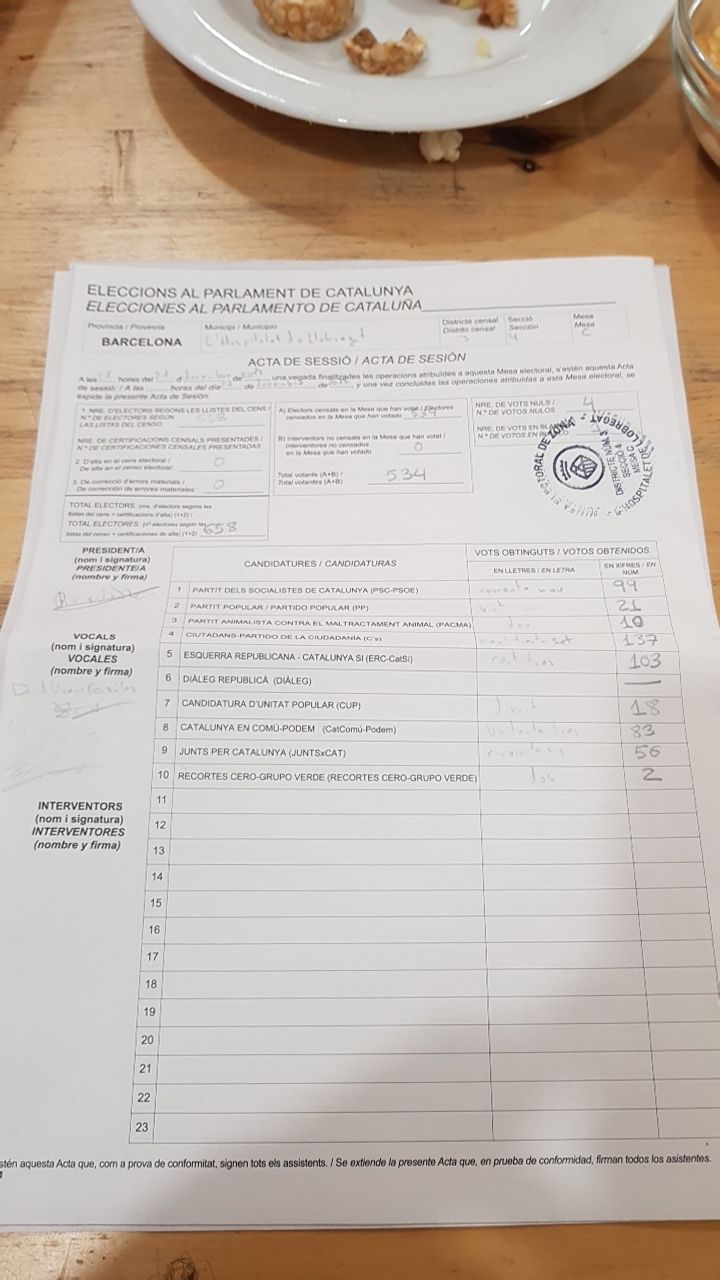 ELECCIONS AL PARLAMENT DE CATALUNYA
ELECCIONES AL PARLAMENTO DE CATALUÑA
Província / Provincia
BARCELONA
Municipi / Municipio
L'Hospitalet de Llobregat
Districte censal
Distrito censal
3
Secció
Sección
4
Mesa
Mesa
C
ACTA DE SESSIÓ / ACTA DE SESIÓN
A les hores del d de una vegada finalitzades les operacions atribuïdes a aquesta Mesa electoral, s'estén aquesta Acta
de sessió / A las hores del día de de , y una vez concluidas las operaciones atribuidas a esta Mesa electoral, se
expide la presente Acta de Sesión:
1 NRE. D'ELECTORS SEGONS LES LLISTES DEL CENS /
N.º DE ELECTORES SEGÚN 658
LAS LISTAS DEL CENSO
NRE. DE CERTIFICACIONS CENSALS PRESENTADES /
N.º CERTIFICACIONES CENSALES PRESENTADAS
2 D'alta en el cens electoral / 0
De alta en el censo electoral
3 De correcció d'errors materials / 0
De corrección de errores materiales
TOTAL ELECTORS:
TOTAL ELECTORES: 658
A) Electors censats en la Mesa que han votat / Electores
censados en la Mesa que han votado 534
B) Interventors no censats en la Mesa que han votat /
Interventores no censados
en la Mesa que han votado 0
Total votants (A+B) /
Total votantes (A+B) 534
NRE. DE VOTS NULS /
N.º DE VOTOS NULOS 4
NRE. DE VOTS EN
N.º DE VOTOS EN
DISTRICTE NÚM.
SECCIÓ 4
MESA C
PRESIDENT/A
(nom i signatura)
PRESIDENTE/A
(nombre y firma)
VOCALS
(nom i signatura)
VOCALES
(nombre y firma)
INTERVENTORS
(nom i signatura)
INTERVENTORES
(nombre y firma)
CANDIDATURES / CANDIDATURAS
VOTS OBTINGUTS / VOTOS OBTENIDOS
EN LLETRES / EN LETRA
EN XIFRES / EN
NÚM.
1 PARTIT DELS SOCIALISTES DE CATALUNYA (PSC-PSOE) noranta nou 99
2 PARTIT POPULAR / PARTIDO POPULAR (PP) 21
3 PARTIT ANIMALISTA CONTRA EL MALTRACTAMENT ANIMAL (PACMA) deu 10
4 CIUTADANS-PARTIDO DE LA CIUDADANÍA (C's) 137
5 ESQUERRA REPUBLICANA - CATALUNYA SÍ (ERC-CatSí) 103
6 DIÀLEG REPUBLICÀ (DIÀLEG) —
7 CANDIDATURA D'UNITAT POPULAR (CUP) 18
8 CATALUNYA EN COMÚ-PODEM (CatComú-Podem) 83
9 JUNTS PER CATALUNYA (JUNTSxCAT) 56
10 RECORTES CERO-GRUPO VERDE (RECORTES CERO-GRUPO VERDE) dos 2
11
12
13
14
15
16
17
18
19
20
21
22
23
stén aquesta Acta que, com a prova de conformitat, signen tots els assistents. / Se extiende la presente Acta que, en prueba de conformidad, firman todos los asistentes.